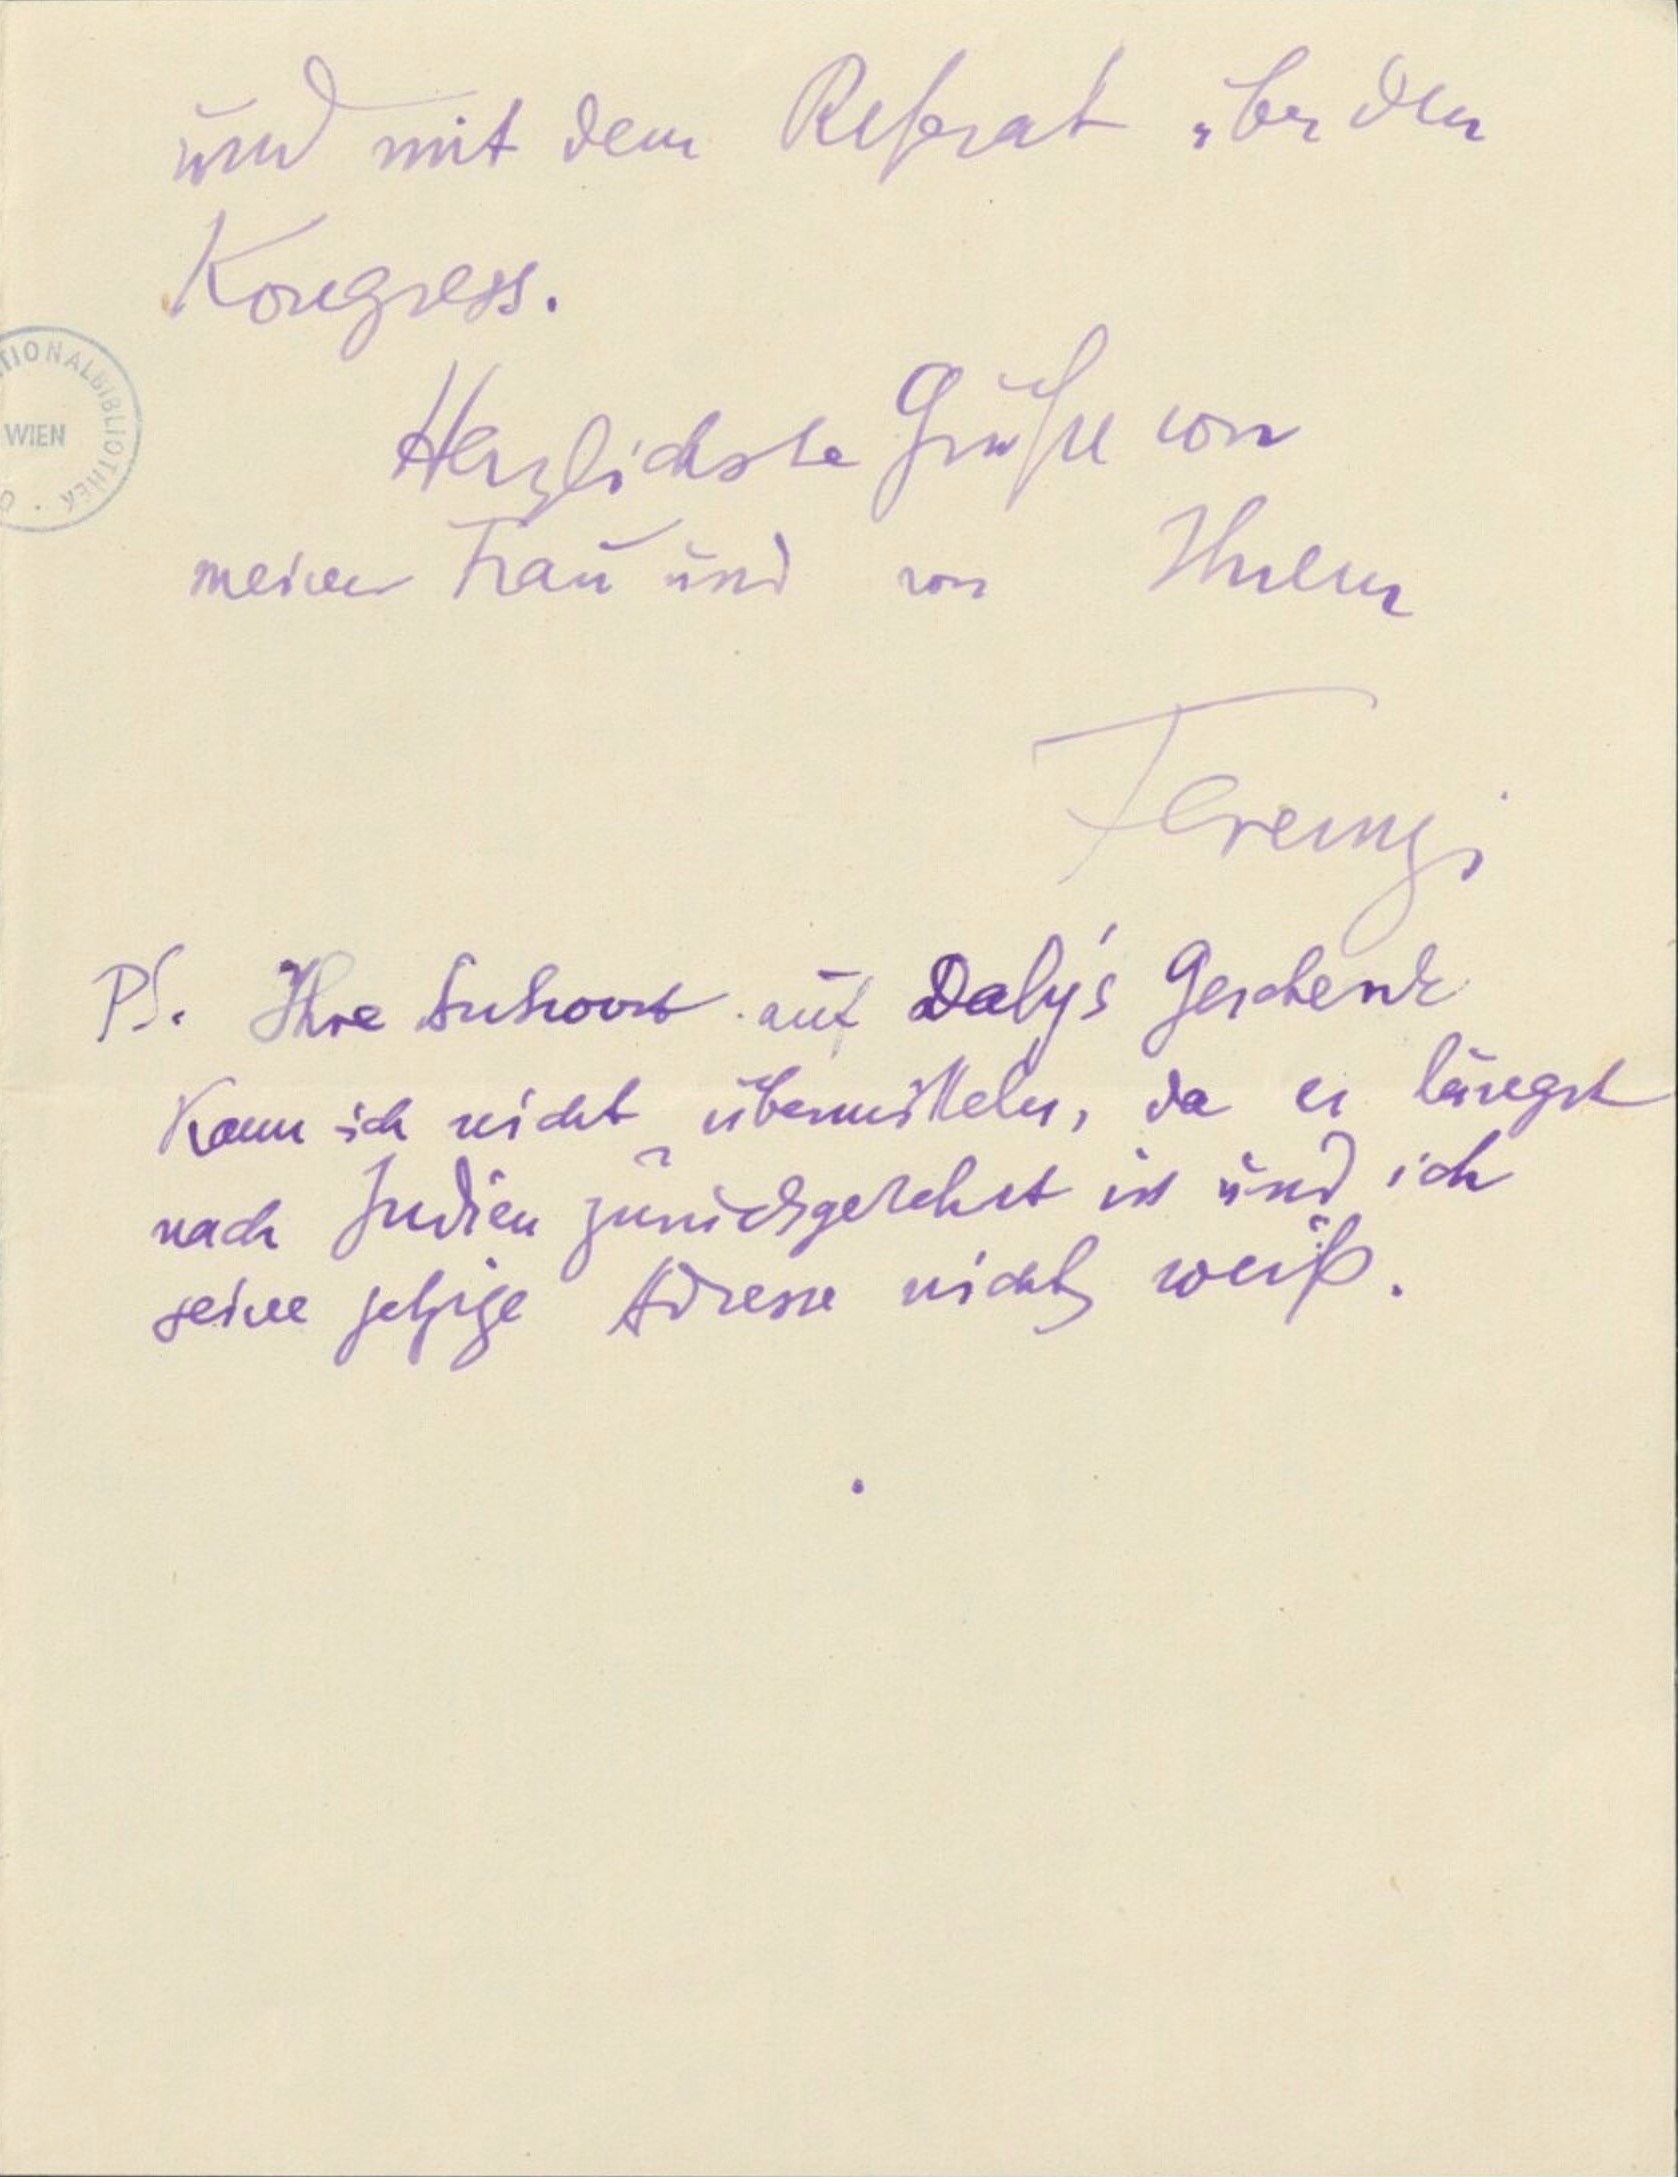 und mit dem Referat über den
Kongress.
Herzlichste Grüße von
meiner Frau und von Ihrem
Ferenczi
PS. Ihre Antwort auf Daly's Geschenk
kann ich nicht übermitteln, da er längst
nach Indien zurückgekehrt ist und ich
seine jetzige Adresse nicht weiß.
TIONALBIBLIOTHEK
WIEN